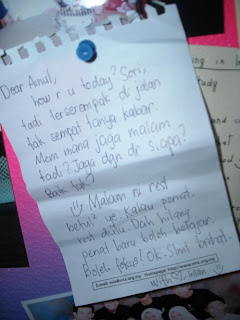 Dear Ainul,
how r u today? Sori,
tadi terserempak dr jalan
tak sempat tanya kabar.
Mcm mana jaga malam
tadi? Jaga dgn dr siapa?
Best tak?
Malam ni rest
betul² ye. Kalau penat
rest dulu. Dah hilang
penat baru boleh belajar.
Boleh fokus! Ok. Slmt brehat.
with ♡, Intan
study